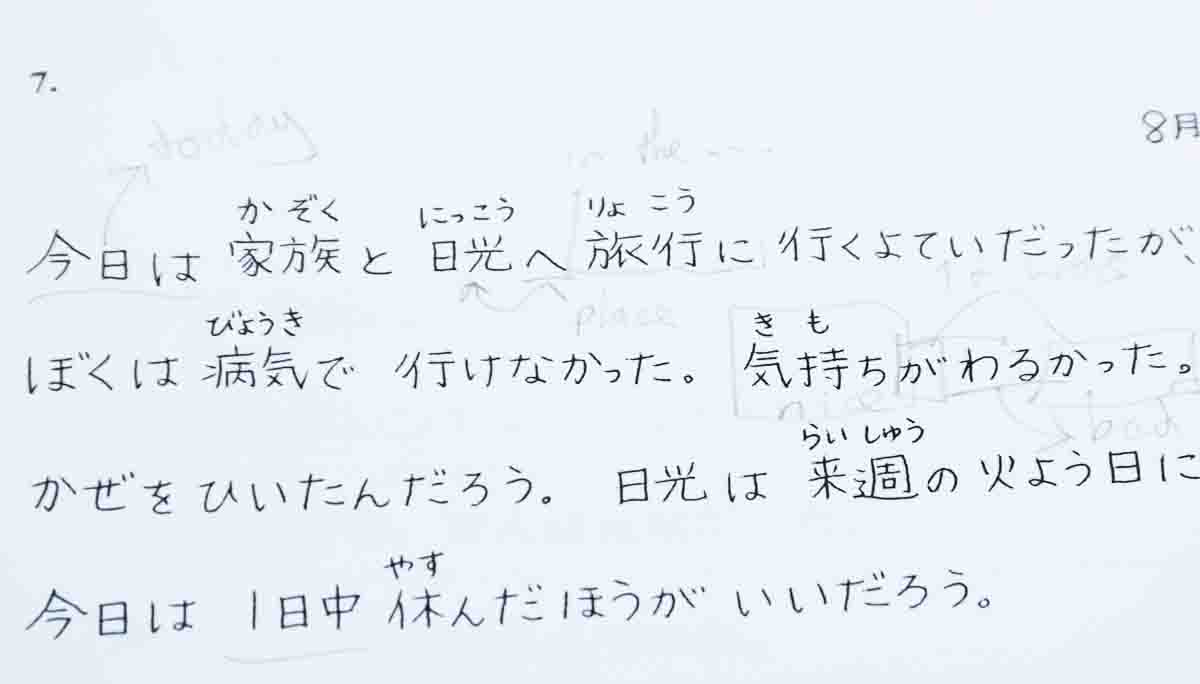 7.
today
8月
in the ....
か ぞく にっこう りょ こう
今日は 家族と 日光へ 旅行に 行くよていだったが、
place
びょうき き も
ぼくは 病気で 行けなかった。 気持ちがわるかった。
nice bad
らい しゅう
かぜを ひいたんだろう。 日光は 来週の 火よう日に
やす
今日は 1日中 休んだほうが いいだろう。